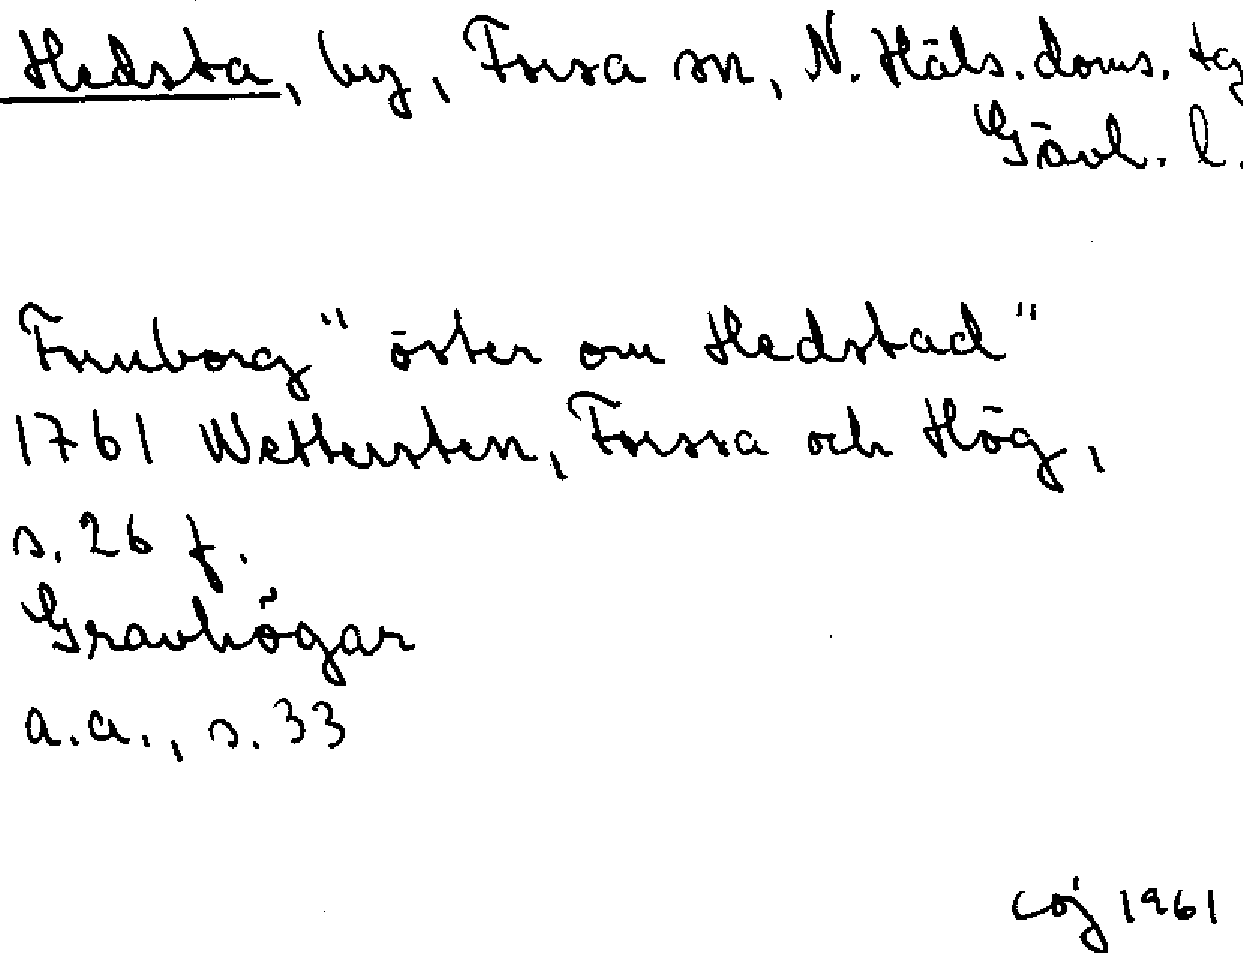 Hedsta, by, Forsa sn, N. Häls. doms. tg
Gävl. l.
Fornborg "öster om Hedstad"
1761 Wettersten, Forssa och Hög,
s. 26 f.
Gravhögar
a.a., s. 33
coj 1961